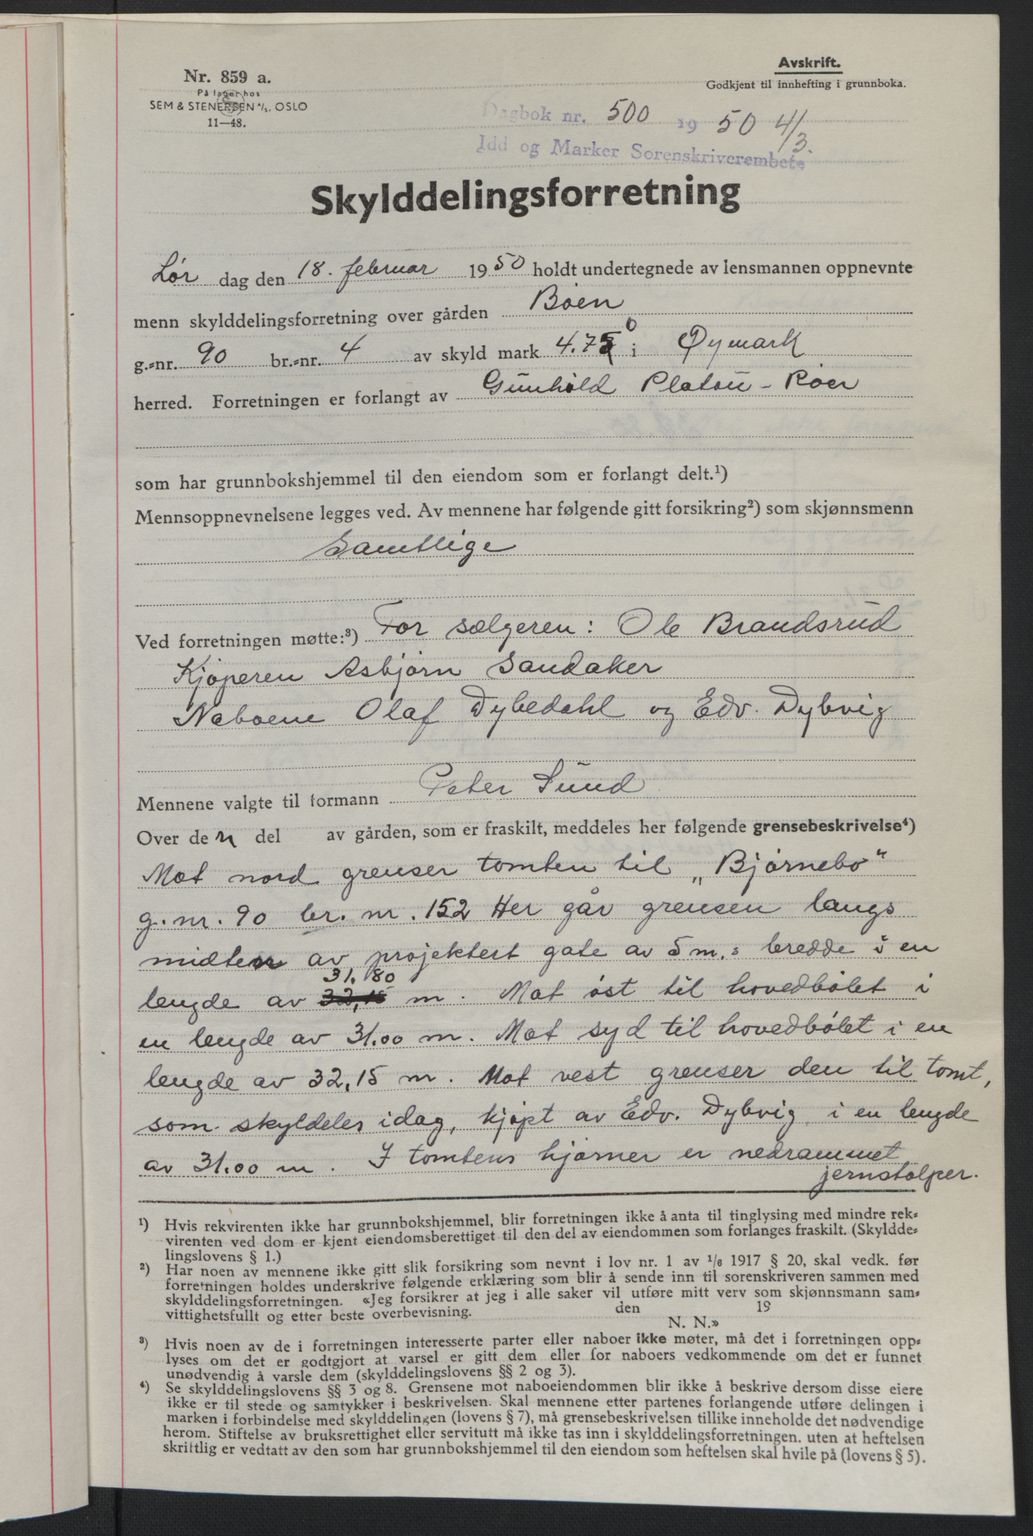 Nr. 859 a.
På lager hos
SEM & STENERSEN A/S. OSLO
11—48.
Avskrift.
Godkjent til innhefting i grunnboka.
Dagbok nr. 500 1950 4/3.
Idd og Marker Sorenskriverembete
Skylddelingsforretning
Lør dag den 18. februar 1950 holdt undertegnede av lensmannen oppnevnte
menn skylddelingsforretning over gården Böen
g.-nr. 90 br.-nr. 4 av skyld mark 4.70 i Øymark
herred. Forretningen er forlangt av Gunhild Platou - Röer
som har grunnbokshjemmel til den eiendom som er forlangt delt.¹)
Mennsoppnevnelsene legges ved. Av mennene har følgende gitt forsikring²) som skjønnsmenn
Samtlige
Ved forretningen møtte:³) For sælgeren: Ole Brandsrud
Kjøperen Asbjörn Sandaker
Naboene Olaf Dybedahl og Edv. Dybvig
Mennene valgte til formann Peter Sund
Over den del av gården, som er fraskilt, meddeles her følgende grensebeskrivelse⁴)
Mot nord grenser tomten til „Björnebo"
g. nr. 90 br. nr. 152 Her går grensen langs
midten av projektert gate av 5 m.s bredde i en
31,80
lengde av 32,15 m. Mot øst til hovedbölet i
en lengde av 31.00 m. Mot syd til hovedbölet i en
lengde av 32,15 m. Mot vest grenser den til tomt,
som skyldeles idag, kjøpt av Edv. Dybvig, i en lengde
av 31.00 m. I tomtens hjörner er nedrammet
jernstolper.
¹) Hvis rekvirenten ikke har grunnbokshjemmel, blir forretningen ikke å anta til tinglysing med mindre rek-
virenten ved dom er kjent eiendomsberettiget til den del av eiendommen som forlanges fraskilt. (Skyldde-
lingslovens § 1.)
²) Har noen av mennene ikke gitt slik forsikring som nevnt i lov nr. 1 av 1/6 1917 § 20, skal vedk. før
forretningen holdes underskrive følgende erklæring som blir å sende inn til sorenskriveren sammen med
skylddelingsforretningen. «Jeg forsikrer at jeg i alle saker vil utføre mitt verv som skjønnsmann sam-
vittighetsfullt og etter beste overbevisning. den 19
N. N.»
³) Hvis noen av de i forretningen interesserte parter eller naboer ikke møter, må det i forretningen opp-
lyses om det er godtgjort at varsel er gitt dem eller for naboers vedkommende om det er funnet
unødvendig å varsle dem (skylddelingslovens §§ 2 og 3).
⁴) Se skylddelingslovens §§ 3 og 8. Grensene mot naboeiendommen blir ikke å beskrive dersom disse eiere
ikke er til stede og samtykker i beskrivelsen. Skal mennene etter partenes forlangende utføre delingen i
marken i forbindelse med skylddelingen (lovens § 7), må grensebeskrivelsen tillike inneholde det nødvendige
herom. Stiftelse av bruksrettighet eller servitutt må ikke tas inn i skylddelingsforretningen. uten at heftelsen
skriftlig er vedtatt av den som har grunnbokshjemmel til den eiendom som heftelsen skal hvile på (lovens § 5).